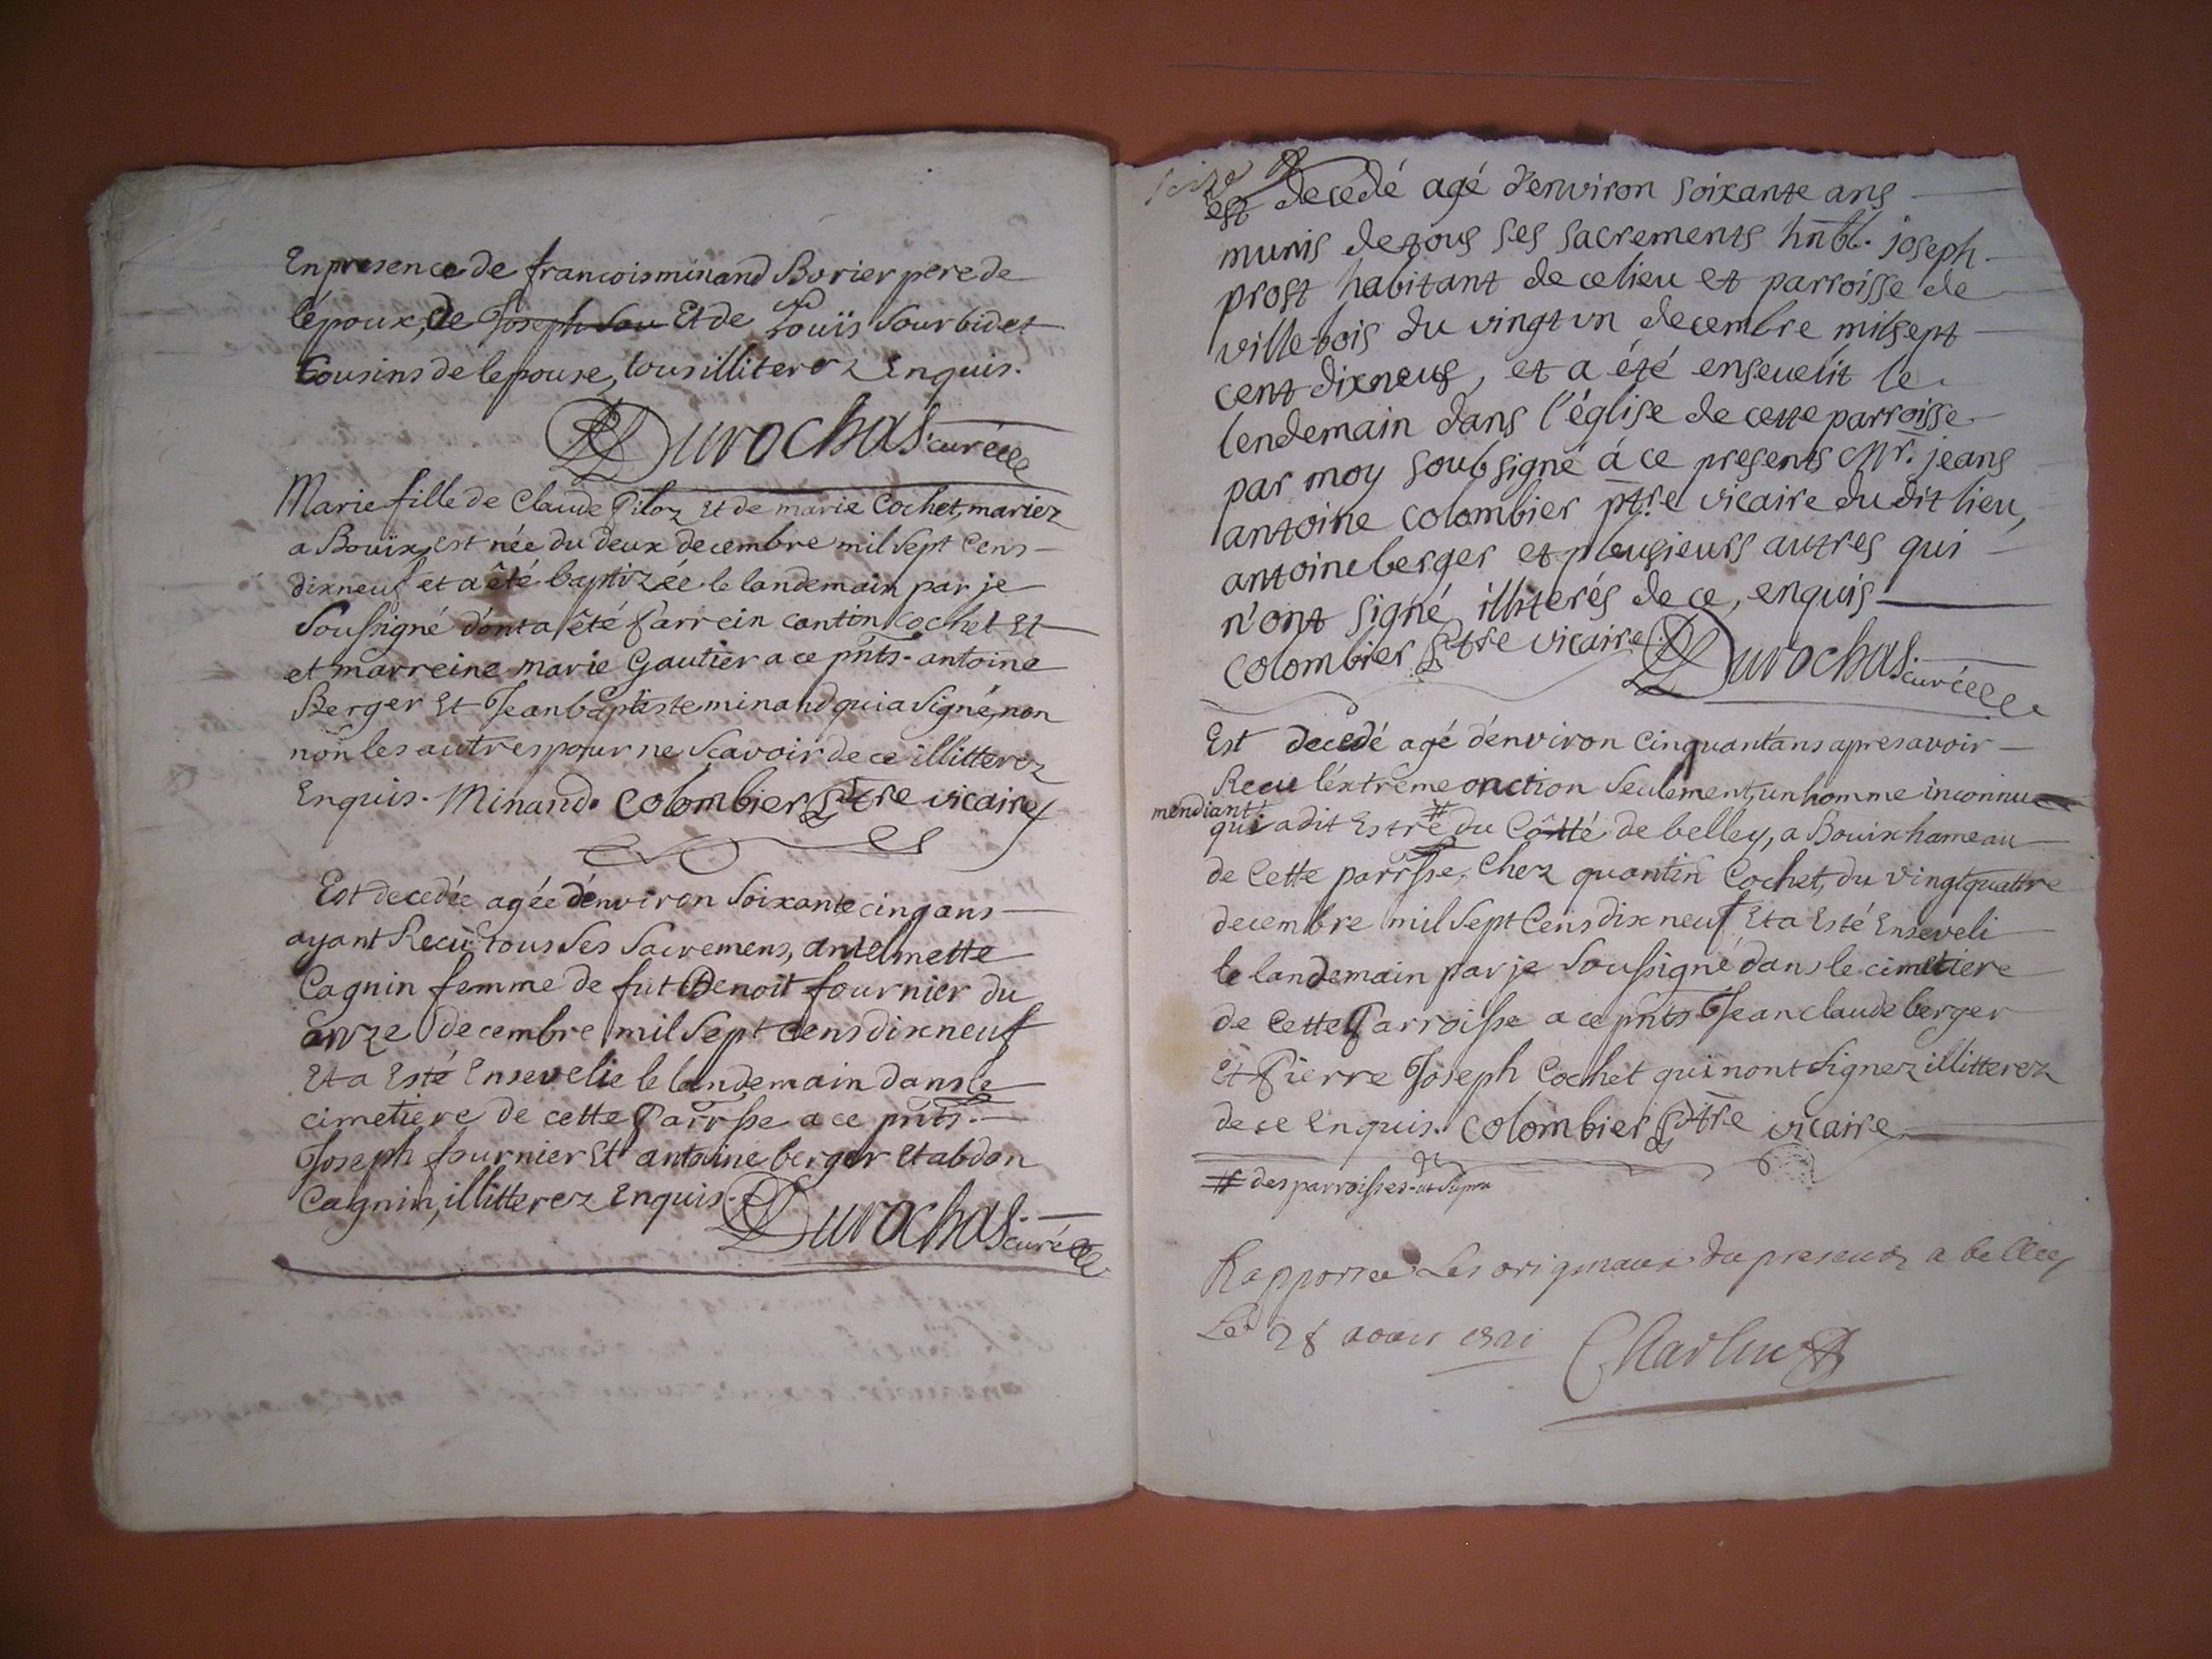 En presence de francois minand Borier pere de
lépoux, de Joseph Sou Et de Louïs Sourbidet
Cousins de lepouse, tous illiterez Enquis.
Durochas curé
Marie fille de Claude Piloz Et de marie Cochet, mariez
a Bouïx, est née du deux decembre mil Sept Cens
dixneuf et a êté baptizée le landemain par je
Soussigné dont a êté Parrein cantin Cochet Et
et marreine marie Gautier a ce pnts. antoine
Berger Et Jean baptiste minand qui a Signé, non
non les autres pour ne Scavoir de ce illitterez
Enquis. Minand. Colombier Ptre vicaire
Est decedée agée d'environ Soixante cinq ans
ayant Recu tous Ses Sacremens, antelmette
Cagnin femme de fut Benoit fournier du
onze decembre mil Sept Cens dixneuf
Et a Esté Ensevelie le landemain dans le
cimetiere de cette Parrsse a ce pnts.
Joseph fournier Et antoine berger Et abdon
Cagnin, illitterez Enquis. Durochas curé
Seize
est decedé agé d'environ soixante ans
munis de tous ses sacrements hnbl. joseph
prost habitant de ce lieu et parroisse de
villebois du vingt un decembre mil sept
cent dixneuf, et a été enseuelit le
lendemain dans l'église de cette parroisse
par moy soubsigné á ce presents Mr. jeans
antoine colombier ptre vicaire du dit lieu,
antoine berger et pleusieurs autres qui
n'ont signé illiterés de ce, enquis
Colombier Ptre vicaire Durochas curé
Est decedé agé d'environ Cinquant'ans apres avoir
Recu l'extrême onction Seulement, un homme inconnu
mendiant
qui a dit Estre # du Côtté de belley, a Bouix hameau
de Cette parrsse, Chez quantin Cochet, du Vingtquattre
decembre mil Sept Cens dix neuf Et a Esté Enseveli
le landemain par je Soussigné dans le cimetiere
de Cette Parroisse a ce pnts Jean claude berger
Et Pierre Joseph Cochet qui nont Signez illitterez
de ce Enquis. Colombier Ptre vicaire
# des parroisses ut Supra
Rapporté Les originaux du present a belley
Le 28 aout